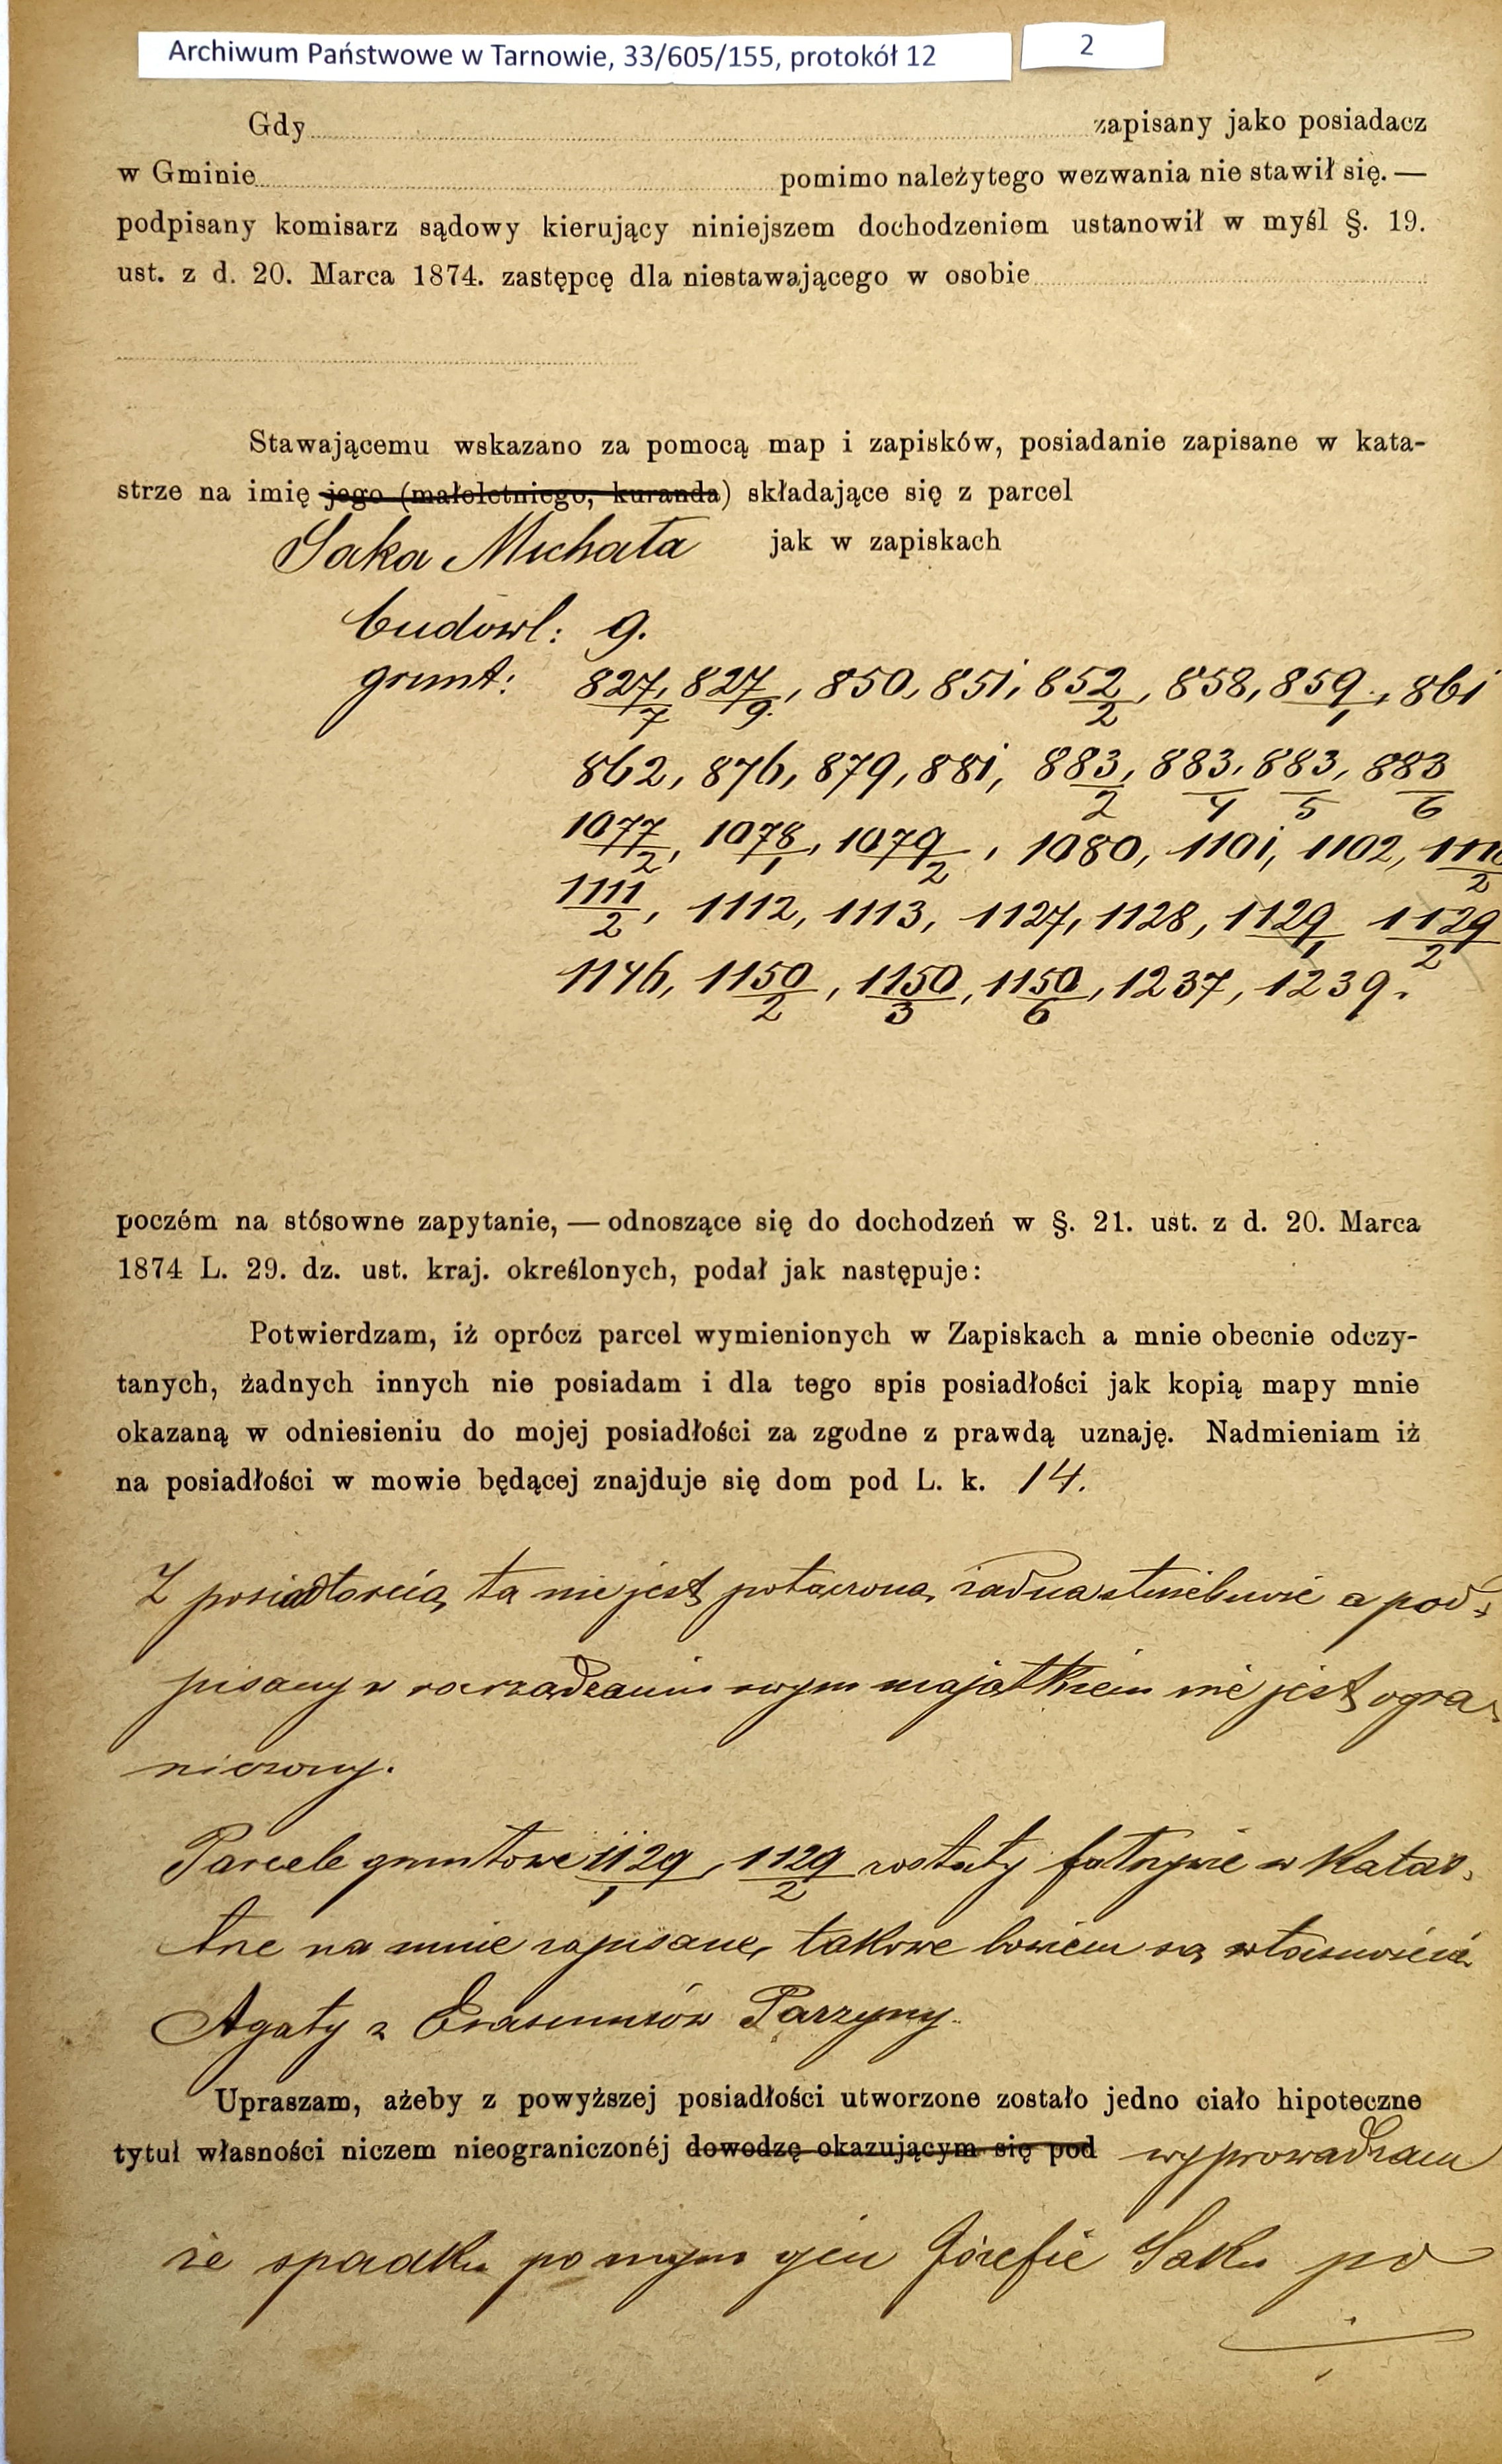 Archiwum Państwowe w Tarnowie, 33/605/155, protokół 12
2
Gdy zapisany jako posiadacz
w Gminie pomimo należytego wezwania nie stawił się. —
podpisany komisarz sądowy kierujący niniejszem dochodzeniem ustanowił w myśl §. 19.
ust. z d. 20. Marca 1874. zastępcę dla niestawającego w osobie
Stawającemu wskazano za pomocą map i zapisków, posiadanie zapisane w kata-
strze na imię jego (małoletniego, kuranda) składające się z parcel
Saka Michała jak w zapiskach
budowl: 9.
grunt: 827/7, 827/9, 850, 851, 852/2, 858, 859/1, 861
862, 876, 879, 881, 883/2, 883/4, 883/5, 883/6
1077/2, 1078/1, 1079/2, 1080, 1101, 1102,
1111/2, 1112, 1113, 1127, 1128, 1129/1 1129/2
1146, 1150/2, 1150/3, 1150/6, 1237, 1239.
poczém na stósowne zapytanie, — odnoszące się do dochodzeń w §. 21. ust. z d. 20. Marca
1874 L. 29. dz. ust. kraj. określonych, podał jak następuje:
Potwierdzam, iż oprócz parcel wymienionych w Zapiskach a mnie obecnie odczy-
tanych, żadnych innych nie posiadam i dla tego spis posiadłości jak kopią mapy mnie
okazaną w odniesieniu do mojej posiadłości za zgodne z prawdą uznaję. Nadmieniam iż
na posiadłości w mowie będącej znajduje się dom pod L. k. 14.
Z posiadłością tą nie jest połączona żadna służebność a pod-
pisany w rozrządzaniu swym majątkiem nie jest ogra-
niczony.
Parcele gruntowe 1129/1, 1129/2 zostały fałszywie w Katas-
trze na mnie zapisane, takowe bowiem są własnością
Agaty z Erasmusów Parzyny.
Upraszam, ażeby z powyższej posiadłości utworzone zostało jedno ciało hipoteczne
tytuł własności niczem nieograniczonéj dowodzę okazującym się pod wyprowadzam
ze spadku po mym ojcu Józefie Saku po